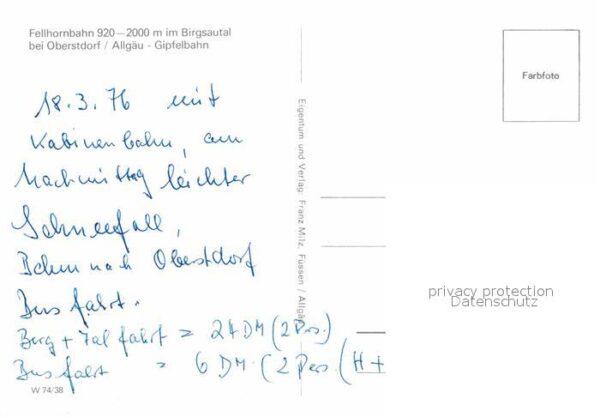 Fellhornbahn 920—2000 m im Birgsautal
bei Oberstdorf / Allgäu - Gipfelbahn
Farbfoto
18.3.76 mit
Kabinenbahn, am
Nachmittag leichter
Schneefall,
nach Oberstdorf
Bus fahrt.
Berg + Tal fahrt = 24 DM (2 Pers.)
Bus fahrt = 6 DM (2 Pers. (H +
W 74/38
Eigentum und Verlag: Franz Milz, Füssen / Allgäu
privacy protection
Datenschutz